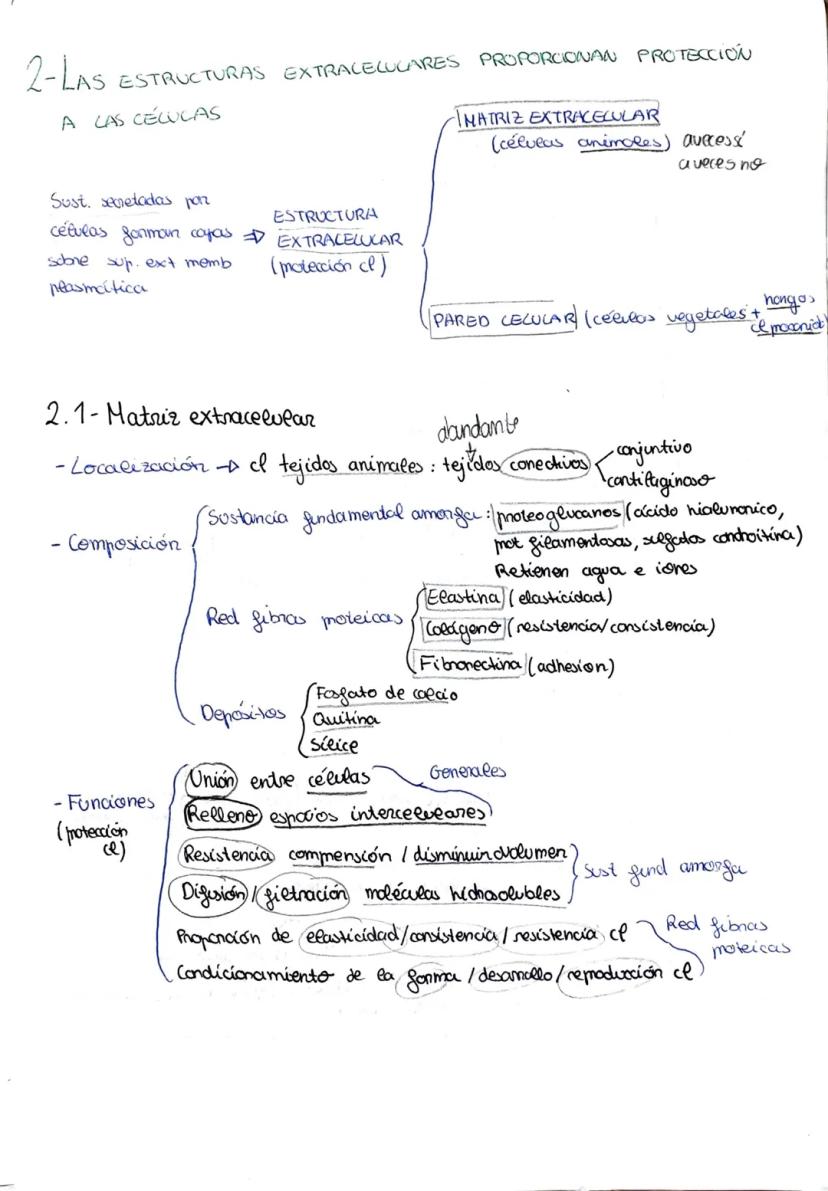 2-LAS ESTRUCTURAS EXTRACELULARES PROPORCIONAN PROTECCIÓN
A LAS CÉLULAS
MATRIZ EXTRACELULAR
(células animales) aveces sí
a veces no
Sust. secretadas por
células forman capas ⇒
sobre sup. ext memb
plasmática
ESTRUCTURA
EXTRACELULAR
(protección cl)
PARED CELULAR (células vegetales + hongos
2.1- Matriz extracelular
abundante
- Localización → cl tejidos animales : tejidos conectivos
conjuntivo
cartilaginoso
- Composición
Sustancia fundamental amorfa: proteoglucanos (ácido hialuronico,
prot filamentosas, sulfatos condroitina)
Retienen agua e iones
Red fibras proteicas
Elastina (elasticidad)
Colágeno (resistencia/consistencia)
Fibronectina (adhesion)
Depósitos
Fosfato de calcio
Quitina
Sílice
- Funciones
(protección
cl)
Unión entre células
Generales
Relleno espacios intercelulares
Resistencia compresión / disminuir volumen
Difusión / filtración moléculas hidrosolubles
Sust fund amorfa
Proporción de elasticidad/consistencia/resistencia cl
Red fibras
proteicas
Condicionamiento de la forma / desarrollo / reproducción cl